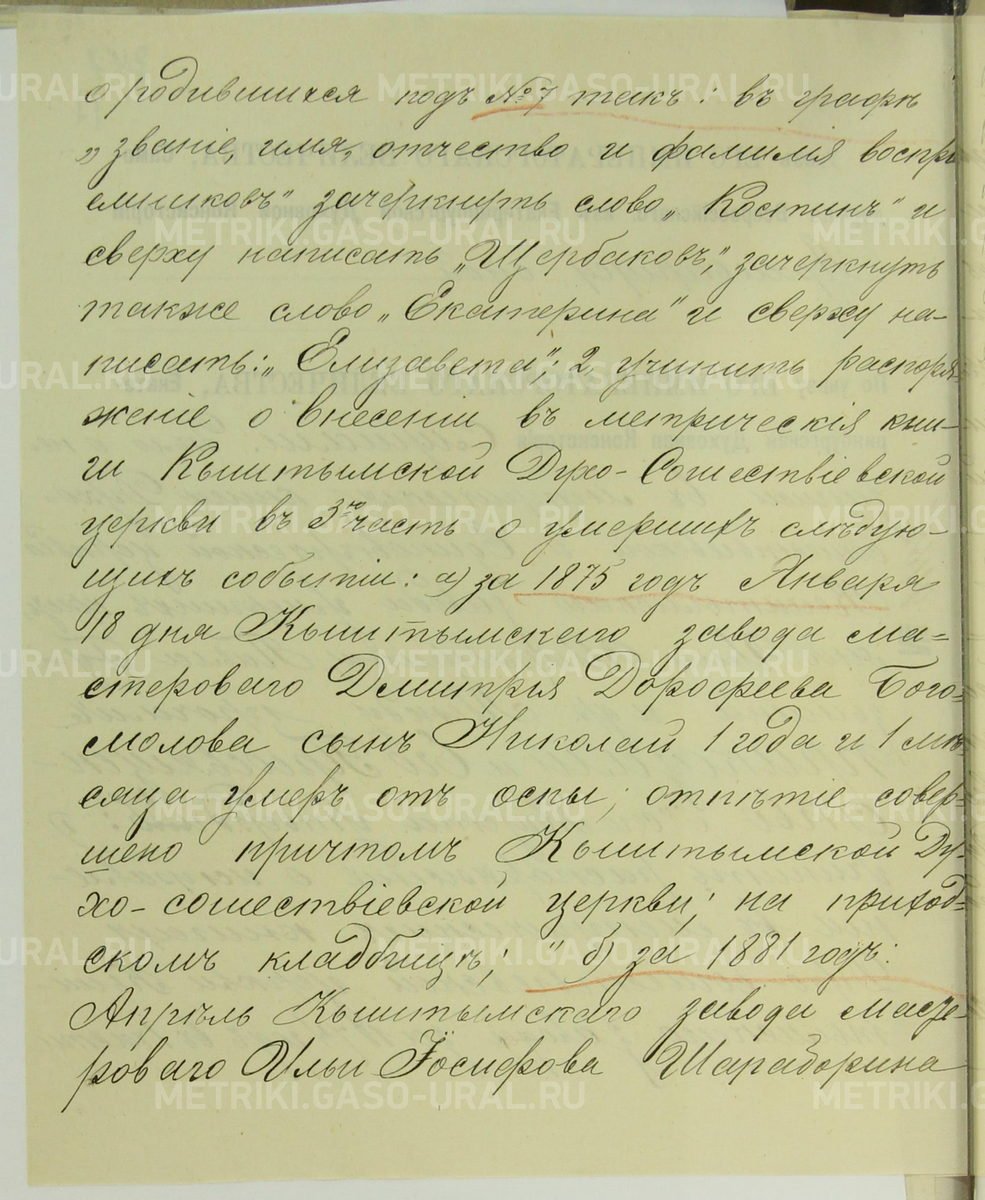 о родившихся подъ №7 такъ: въ графѣ
„званіе, имя, отчество и фамилія воспрі
емниковъ" зачеркнуть слово „Костинъ" и
сверху написать „Щербаковъ", зачеркнуть
также слово „Екатерина" и сверху на-
писать: „Елизавета"; 2, учинить распоря-
женіе о внесеніи въ метрическія кни-
ги Кыштымской Духо-Сошествіевской
церкви въ 3ю часть о умершихъ слѣдую-
щихъ событіи: а) за 1875 годъ Января
18 дня Кыштымскаго завода ма=
стероваго Дмитрія Дорофеева Бого=
молова сынъ Николай 1 года и 1 мѣ
сяца умеръ отъ оспы; отпѣтіе совер=
шено причтомъ Кыштымской Ду-
хо-сошествіевской церкви; на приход=
скомъ кладбищѣ; " б) за 1881 годъ:
Апрѣль Кыштымскаго завода масте-
роваго Ильи Іосифова Шараборина
METRIKI.GASO-URAL.RU